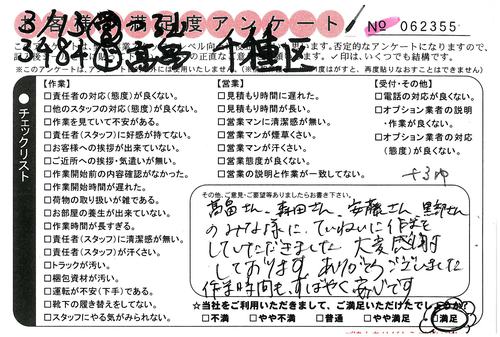 お客様満足度アンケート
No 062355
チェックリスト
【作業】
□責任者の対応(態度)が良くない。
□他のスタッフの対応(態度)が良くない。
□作業を見ていて不安がある。
□責任者(スタッフ)に好感が持てない。
□お客様への挨拶が出来ていない。
□ご近所への挨拶・気遣いが無い。
□作業開始前の内容確認がなかった。
□作業開始時間が遅れた。
□荷物の取り扱いが雑である。
□お部屋の養生が出来ていない。
□作業時間が長すぎる。
□責任者(スタッフ)に清潔感が無い。
□責任者(スタッフ)が汗くさい。
□トラックが汚い。
□梱包資材が汚い。
□運転が不安(下手)である。
□靴下の履き替えをしてない。
□スタッフにやる気がみられない。
【営業】
□見積もり時間に遅れた。
□見積もり時間が長い。
□営業マンに清潔感が無い。
□営業マンが煙草くさい。
□営業マンが汗くさい。
□営業態度が良くない。
□営業の説明と作業が一致してない。
【受付・その他】
□電話の対応が良くない。
□オプション業者の説明
・作業が良くない。
□オプション業者の対応
(態度)が良くない。
その他、ご意見・ご要望等ありましたらお書き下さい。
高畠さん、森田さん、安藤さん、黒部さん
のみな様に、ていねいに作業を
していただきました 大変感謝
しております。ありがとうございました
作業時間も、すばやく
★当社をご利用いただきまして、ご満足いただけたでしょうか?
□不満 □やや不満 □普通 □やや満足 □満足